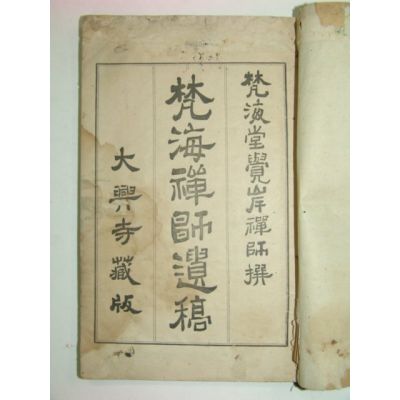 梵海堂覺岸禪師撰
梵海禪師遺稿
大興寺藏版